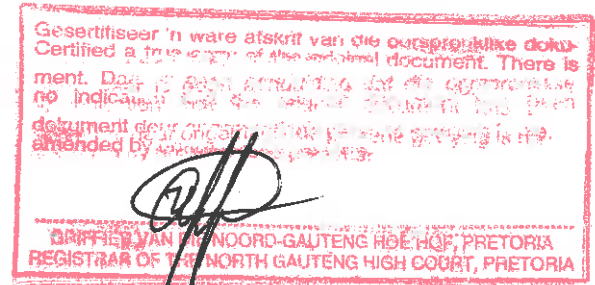 Gesertifiseer 'n ware afskrif van die oorspronklike doku-
Certified a true copy of the original document. There is
ment. Daar is geen aanduiding dat die oorspronklike
no indication that the original document has been
dokument deur onbevoegde persone gewysig is nie.
amended by
GRIFFIER VAN DIE NOORD-GAUTENG HOË HOF, PRETORIA
REGISTRAR OF THE NORTH GAUTENG HIGH COURT, PRETORIA